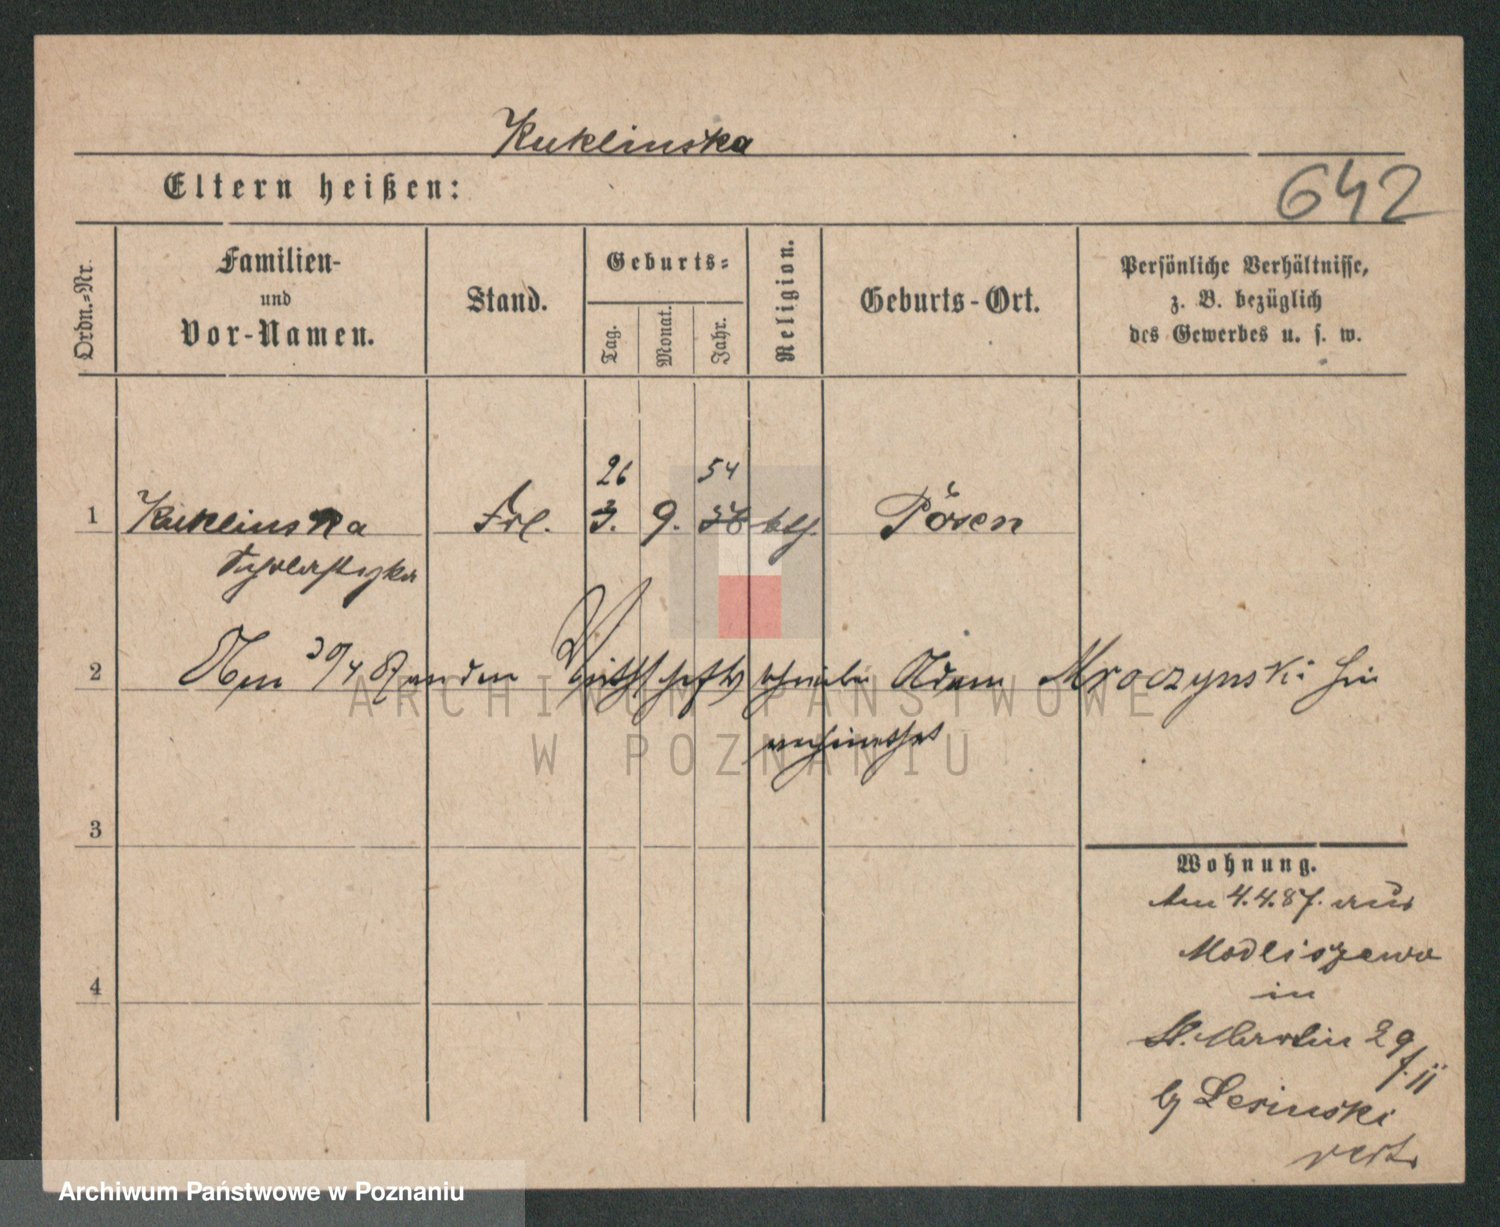 Kuklinska
Eltern heißen:
642
Ordn.-Nr.
Familien-
und
Vor-Namen.
Stand.
Geburts-
Tag.
Monat.
Jahr.
Religion.
Geburts-Ort.
Persönliche Verhältnisse,
z. B. bezüglich
des Gewerbes u. s. w.
26 54
1 Kuklinska Frl. 3. 9. 56 kth. Posen
Scholastyka
2 Am 30/4 87 an den Wirthschaftsschreiber Adam Mroczynski hier
verheirathet
ARCHIWUM PAŃSTWOWE
W POZNANIU
3
Wohnung.
Am 4.4.87. aus
Modliszewo
in
4
St. Martin 29
f. II
by Lesinski
Archiwum Państwowe w Poznaniu